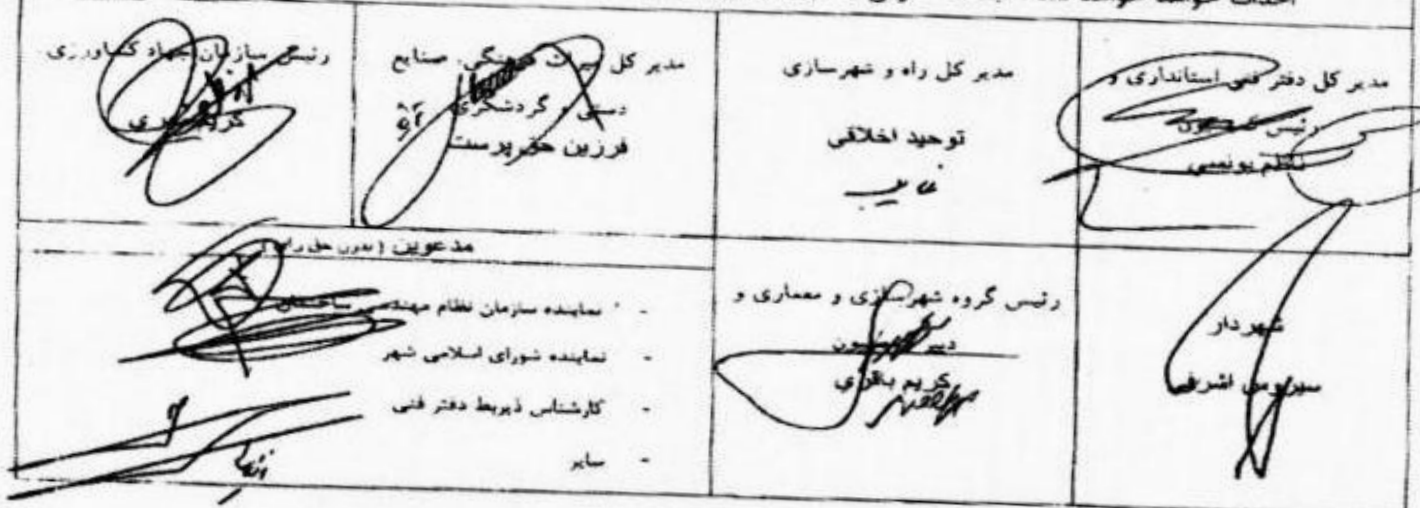 مدیر کل دفتر فنی استانداری و
رئیس کمیسیون
ناظم یونسی
مدیر کل راه و شهرسازی
توحید اخلاقی
غایب
مدیر کل میراث فرهنگی، صنایع
دستی و گردشگری
فرزین حق پرست
رئیس سازمان جهاد کشاورزی
شهردار
سیروس اشرفی
رئیس گروه شهرسازی و معماری و
دبیر کمیسیون
کریم باقری
مدعوین (بدون حق رای)
- نماینده سازمان نظام مهندسی ساختمان
- نماینده شورای اسلامی شهر
- کارشناس ذیربط دفتر فنی
- سایر